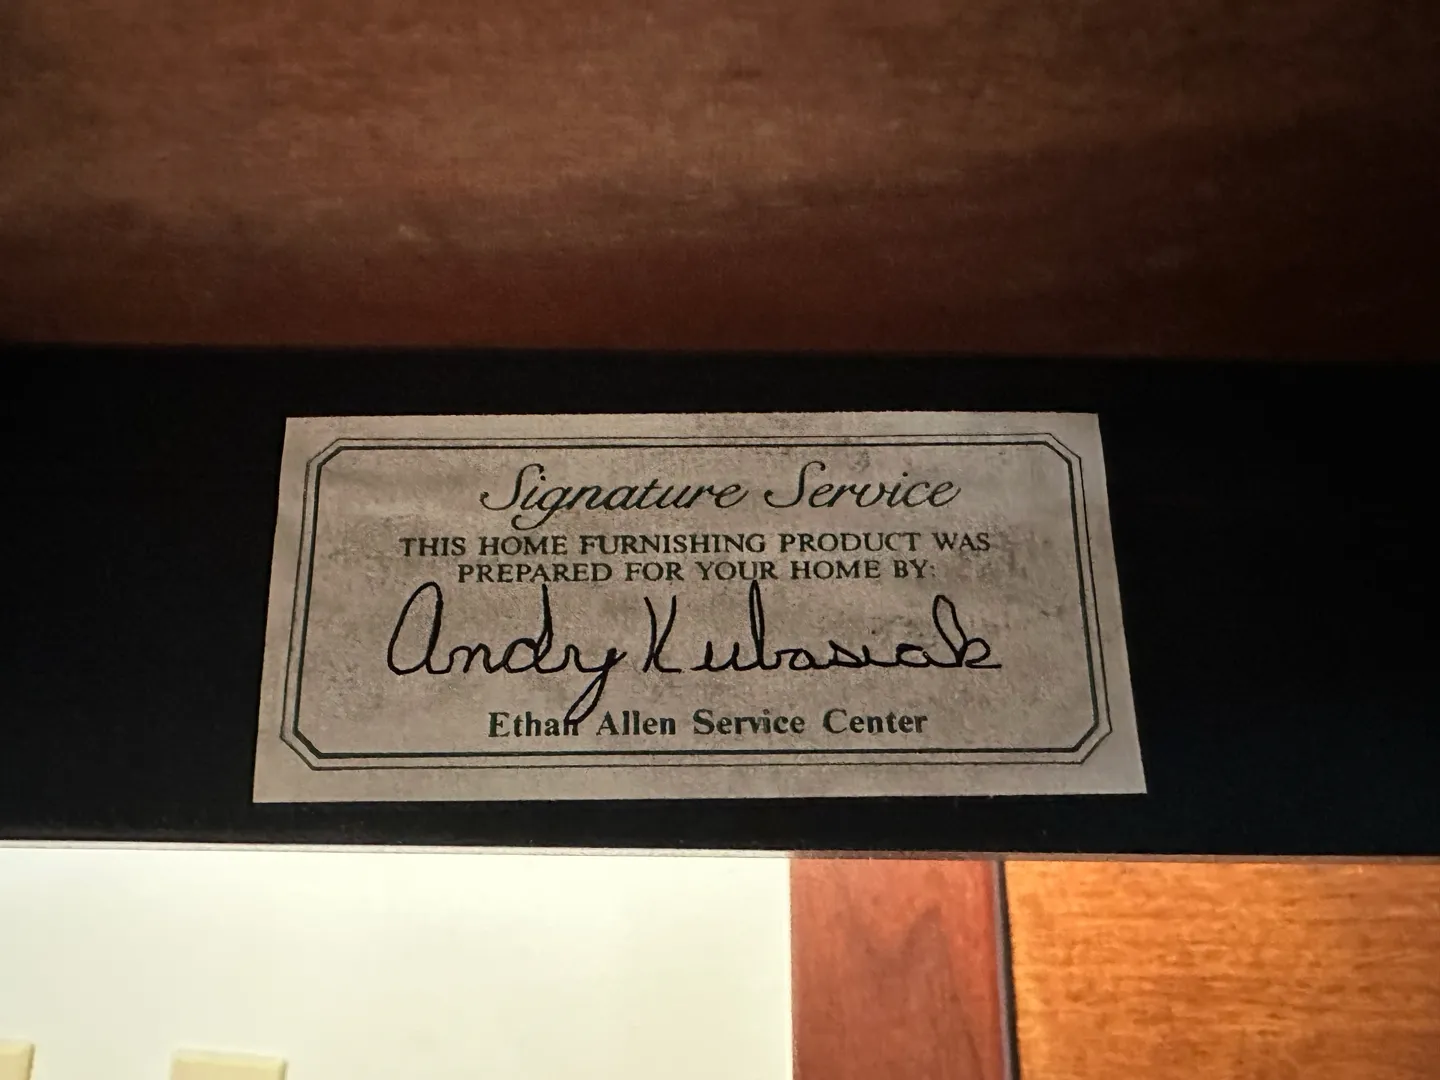 Signature Service
THIS HOME FURNISHING PRODUCT WAS
PREPARED FOR YOUR HOME BY:
Andy Kubasiak
Ethan Allen Service Center